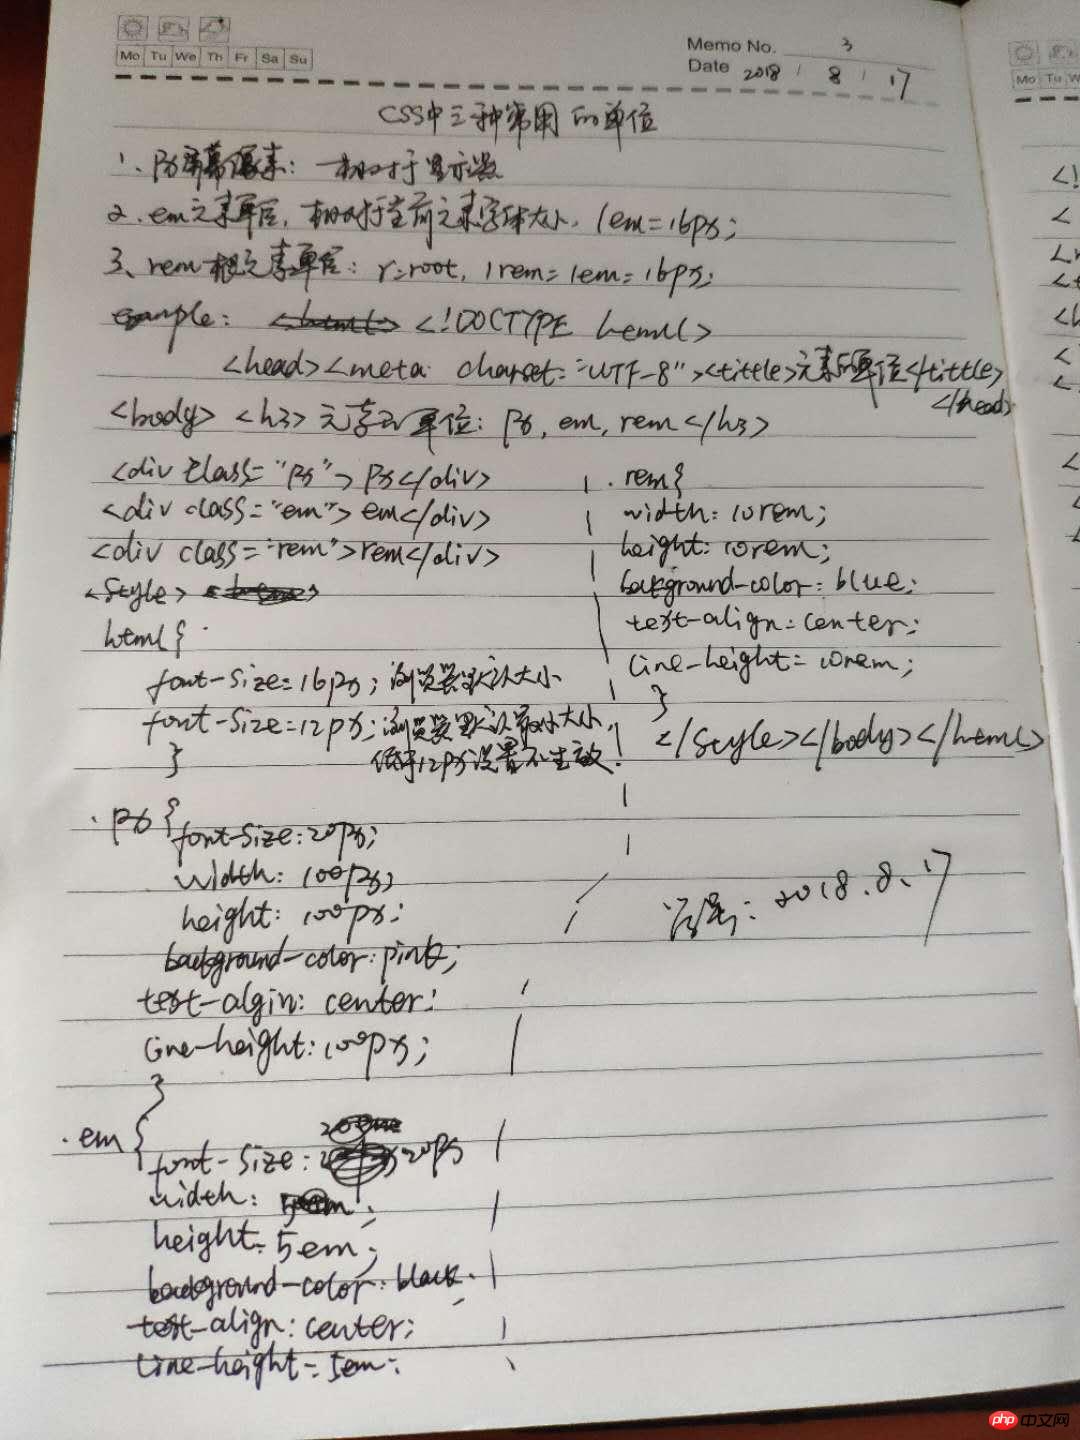 Mo Tu We Th Fr Sa Su
Memo No. 3
Date 2018 / 8 / 17
CSS中三种常用的单位
1、px屏幕像素：一相对于显示数
2、em元素单位，相对于当前元素字体大小，1em=16px;
3、rem根元素单位：r=root，1rem=1em=16px;
example: <!DOCTYPE html>
<head><meta charset="UTF-8"><tittle>元素的单位</tittle>
</head>
<body> <h3>元素的单位：px, em, rem</h3>
<div class="px">px</div>
<div class="em">em</div>
<div class="rem">rem</div>
<style>
html{
font-size=16px; 浏览器默认大小
font-size=12px; 浏览器默认最小大小,
低于12px设置不生效.
}
.px{
font-size:20px;
width: 100px;
height: 100px;
background-color:pink;
text-algin: center;
line-height:100px;
}
.em{
font-size: 20px
width: 5em;
height=5em;
background-color:black.
text-align:center;
line-height=5em;
.rem{
width:10rem;
height:10rem;
background-color:blue;
text-align=center;
line-height=10rem;
}
</style></body></html>
2018.8.17
Mo Tu W
php 中文网